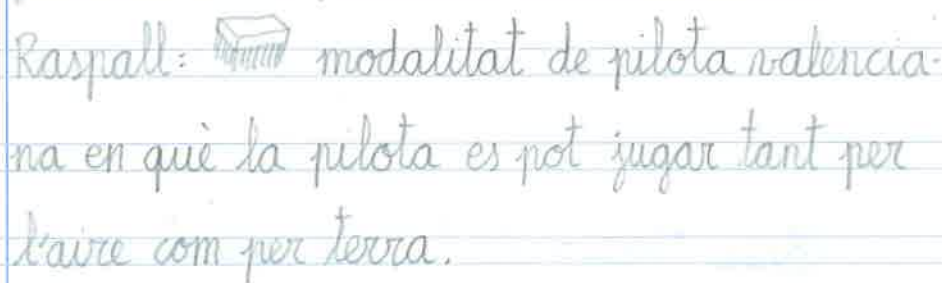 Raspall: modalitat de pilota valencia-
na en què la pilota es pot jugar tant per
l'aire com per terra.